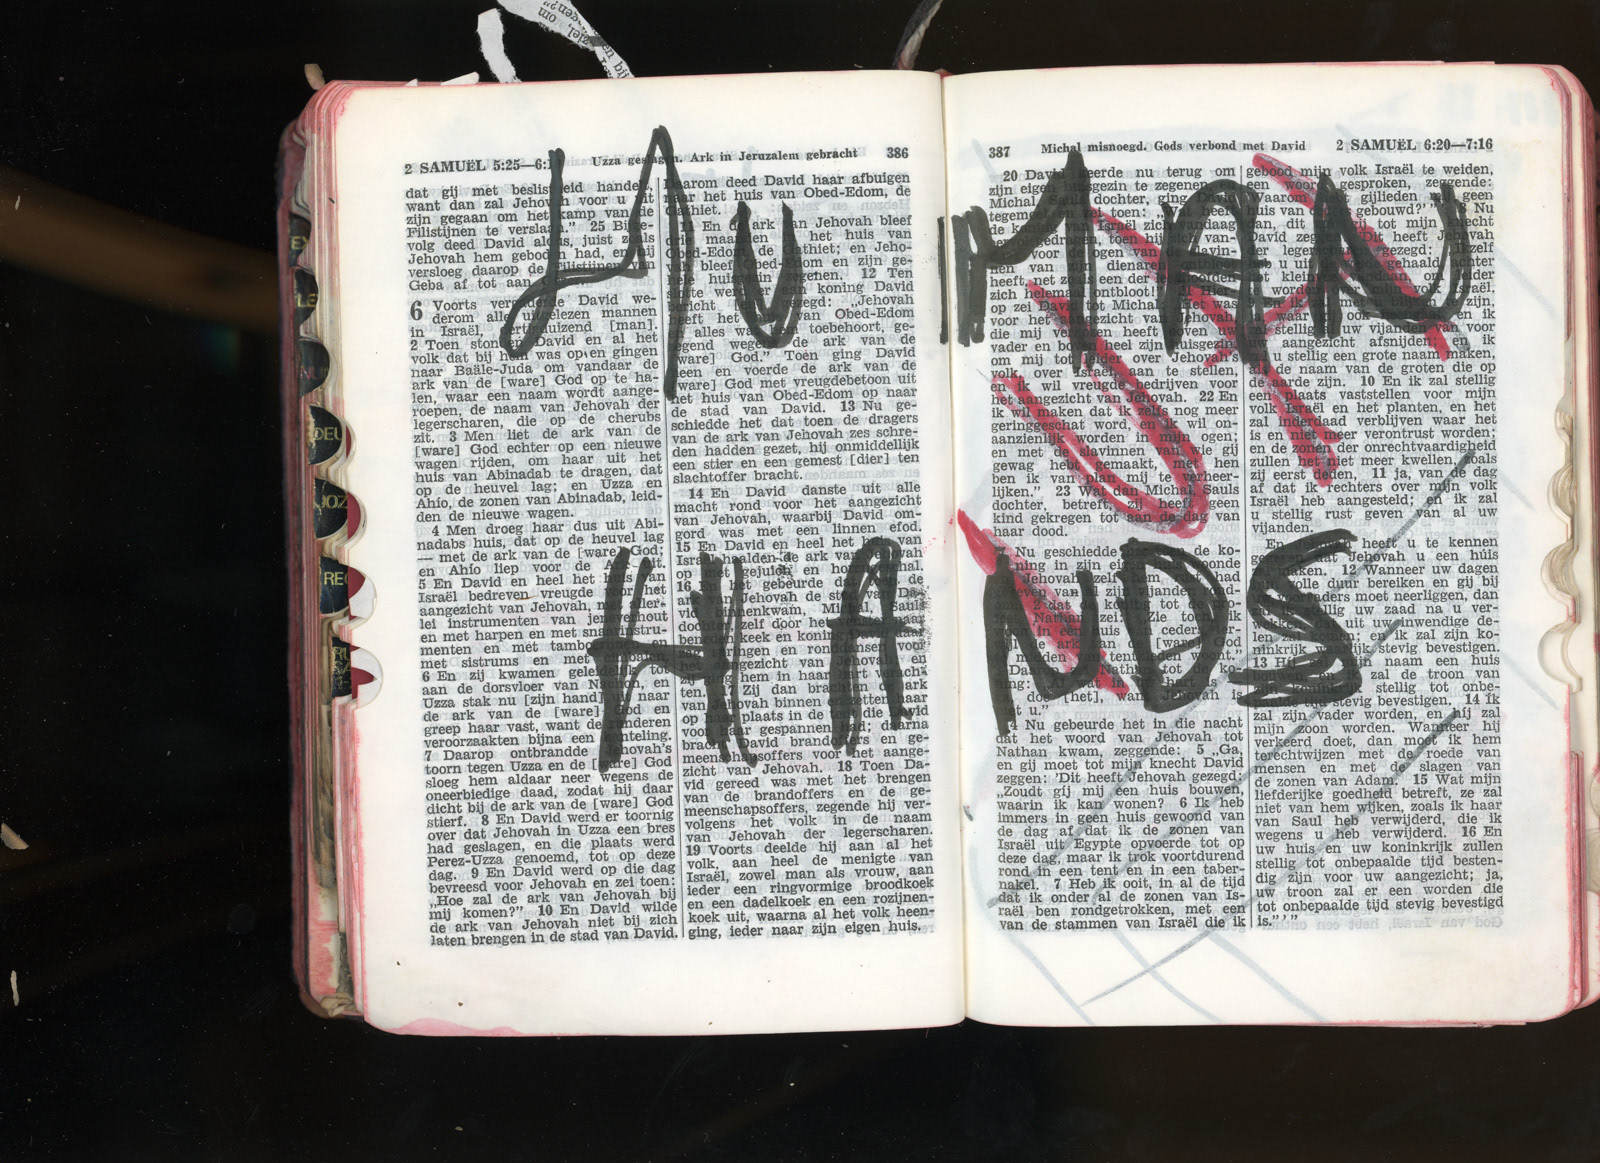 2 SAMUËL 5:25—6:1 Uzza geslagen. Ark in Jeruzalem gebracht 386
HUMAN
HANDS
dat gij met beslistheid handelt,
want dan zal Jehovah voor u uit
zijn gegaan om het kamp van de
Filistijnen te verslaan.” 25 Bijge-
volg deed David aldus, juist zoals
Jehovah hem geboden had, en hij
versloeg daarop de Filistijnen van
Geba af tot aan
6 Voorts vergaderde David we-
derom alle uitgelezen mannen
in Israël, dertigduizend [man].
2 Toen stonden David en al het
volk dat bij hem was op en gingen
naar Baäle-Juda om vandaar de
ark van de [ware] God op te ha-
len, waar een naam wordt aange-
roepen, de naam van Jehovah der
legerscharen, die op de cherubs
zit. 3 Men liet de ark van de
[ware] God echter op een nieuwe
wagen rijden, om haar uit het
huis van Abinadab te dragen, dat
op de heuvel lag; en Uzza en
Ahio, de zonen van Abinadab, leid-
den de nieuwe wagen.
4 Men droeg haar dus uit Abi-
nadabs huis, dat op de heuvel lag
— met de ark van de [ware] God;
en Ahio liep voor de Ark uit.
5 En David en heel het huis van
Israël bedreven vreugde voor het
aangezicht van Jehovah, met aller-
lei instrumenten van jeneverhout
en met harpen en met snaarinstru-
menten en met tamboerijnen
met sistrums en met cimbalen.
6 En zij kwamen geleidelijk tot
aan de dorsvloer van Nachon, en
Uzza stak nu [zijn hand] naar
de ark van de [ware] God en
greep haar vast, want de runderen
veroorzaakten bijna een kanteling.
7 Daarop ontbrandde Jehovah's
toorn tegen Uzza en de [ware] God
sloeg hem aldaar neer wegens de
oneerbiedige daad, zodat hij daar
dicht bij de ark van de [ware] God
stierf. 8 En David werd er toornig
over dat Jehovah in Uzza een bres
had geslagen, en die plaats werd
Perez-Uzza genoemd, tot op deze
dag. 9 En David werd op die dag
bevreesd voor Jehovah en zei toen:
„Hoe zal de ark van Jehovah bij
mij komen?” 10 En David wilde
de ark van Jehovah niet bij zich
laten brengen in de stad van David.
Daarom deed David haar afbuigen
naar het huis van Obed-Edom, de
Gathiet.
11 En de ark van Jehovah bleef
drie maanden in het huis van
Obed-Edom, de Gathiet; en Jeho-
vah bleef Obed-Edom en zijn ge-
hele huisgezin zegenen. 12 Ten
slotte werd er aan koning David
bericht en gezegd: „Jehovah
heeft het van Obed-Edom
en alles wat hem toebehoort, ge-
zegend wegens de ark van de
[ware] God.” Toen ging David
heen en voerde de ark van de
[ware] God met vreugdebetoon uit
het huis van Obed-Edom op naar
de stad van David. 13 Nu ge-
schiedde het dat toen de dragers
van de ark van Jehovah zes schre-
den hadden gezet, hij onmiddellijk
een stier en een gemest [dier] ten
slachtoffer bracht.
14 En David danste uit alle
macht rond voor het aangezicht
van Jehovah, waarbij David om-
gord was met een linnen efod.
15 En David en heel het huis van
Israël haalden de ark van Jehovah
op met gejuich en
16 En het gebeurde dat toen de
ark van Jehovah de stad van Da-
vid binnenkwam, Michal, Sauls
dochter, zelf door het venster naar
beneden keek en koning David daar
zag springen en ronddansen voor
het aangezicht van Jehovah; en
zij ging hem in haar hart verach-
ten. 17 Zij dan brachten de ark
van Jehovah binnen en zetten haar
op haar plaats in de tent die David
voor haar gespannen had; daarna
bracht David brandoffers en ge-
meenschapsoffers voor het aange-
zicht van Jehovah. 18 Toen Da-
vid gereed was met het brengen
van de brandoffers en de ge-
meenschapsoffers, zegende hij ver-
volgens het volk in de naam
van Jehovah der legerscharen.
19 Voorts deelde hij aan al het
volk, aan heel de menigte van
Israël, zowel man als vrouw, aan
ieder een ringvormige broodkoek
en een dadelkoek en een rozijnen-
koek uit, waarna al het volk heen-
ging, ieder naar zijn eigen huis.
387 Michal misnoegd. Gods verbond met David 2 SAMUËL 6:20—7:16
20 David keerde nu terug om
zijn eigen huisgezin te zegenen, en
Michal, Sauls dochter, ging David
tegemoet en zei toen: „Wat heeft
de koning van Israël zich vandaag
gedragen, toen hij zich van-
daag voor de ogen van de
van zijn dienaren
heeft, net zoals een der
zich helemaal ontbloot!” 21 Hierop
zei David tot Michal: „Het was
voor het aangezicht van Jehovah,
die mij verkozen heeft boven uw
vader en boven heel zijn huisgezin
om mij tot leider over Jehovah's
volk, over Israël, aan te stellen,
en ik wil vreugde bedrijven voor
het aangezicht van Jehovah. 22 En
ik wil maken dat ik zelfs nog meer
geringgeschat word, en ik wil on-
aanzienlijk worden in mijn ogen;
en met de slavinnen van wie gij
gewag hebt gemaakt, met hen
ben ik van plan mij te verheer-
lijken.” 23 Wat dan Michal, Sauls
dochter, betreft, zij heeft geen
kind gekregen tot aan de dag van
haar dood.
Nu geschiedde het toen de ko-
ning in zijn eigen huis woonde
Jehovah zelf hem rust had
gegeven van al zijn vijanden rond-
om, 2 dat de koning tot de pro-
feet Nathan zei: „Zie toch, ik
woon in een huis van ceders ter-
wijl de ark van
midden van tentkleden woont.”
3 Daarop zei Nathan tot de ko-
ning: „Al wat in uw hart is
doe [het], want Jehovah is
met u.”
4 Nu gebeurde het in die nacht
dat het woord van Jehovah tot
Nathan kwam, zeggende: 5 „Ga,
en gij moet tot mijn knecht David
zeggen: ‘Dit heeft Jehovah gezegd:
„Zoudt gij mij een huis bouwen,
waarin ik kan wonen? 6 Ik heb
immers in geen huis gewoond van
de dag af dat ik de zonen van
Israël uit Egypte opvoerde tot op
deze dag, maar ik trok voortdurend
rond in een tent en in een taber-
nakel. 7 Heb ik ooit, in al de tijd
dat ik onder al de zonen van Is-
raël ben rondgetrokken, met een
van de stammen van Israël die ik
gebood mijn volk Israël te weiden,
een woord gesproken, zeggende:
‘Waarom hebt gijlieden mij geen
huis van ceders gebouwd?’” 8 Nu
dan, dit moet gij tot mijn knecht
David zeggen: ‘Dit heeft Jehovah
der legerscharen gezegd: „Ikzelf
heb u uit de gehaald achter
het kleinvee om leider
te worden over mijn volk Israël.
9 En ik zal met u blijken te zijn,
ook en ik
stellig al uw vijanden van voor
uw aangezicht afsnijden; en ik
zal u stellig een grote naam maken,
als de naam van de groten die op
de aarde zijn. 10 En ik zal stellig
een plaats vaststellen voor mijn
volk Israël en het planten, en het
zal inderdaad verblijven waar het
is en niet meer verontrust worden;
en de zonen der onrechtvaardigheid
zullen het niet meer kwellen, zoals
zij eerst deden, 11 ja, van de dag
af dat ik rechters over mijn volk
Israël heb aangesteld; en ik zal
u stellig rust geven van al uw
vijanden.
En Jehovah heeft u te kennen
gegeven dat Jehovah u een huis
zal maken. 12 Wanneer uw dagen
ten volle duur bereiken en gij bij
uw voorvaders moet neerliggen, dan
zal ik stellig uw zaad na u ver-
wekken, uit uw inwendige de-
len zal komen; en ik zal zijn ko-
ninkrijk werkelijk stevig bevestigen.
13 Hij mijn naam een huis
bouwen, ik zal de troon van
zijn koninkrijk stellig tot onbe-
paalde tijd stevig bevestigen. 14 Ik
zal zijn vader worden, en hij zal
mijn zoon worden. Wanneer hij
verkeerd doet, dan moet ik hem
terechtwijzen met de roede van
mensen en met de slagen van
de zonen van Adam. 15 Wat mijn
liefderijke goedheid betreft, ze zal
niet van hem wijken, zoals ik haar
van Saul heb verwijderd, die ik
wegens u heb verwijderd. 16 En
uw huis en uw koninkrijk zullen
stellig tot onbepaalde tijd besten-
dig zijn voor uw aangezicht; ja,
uw troon zal er een worden die
tot onbepaalde tijd stevig bevestigd
is.”’”